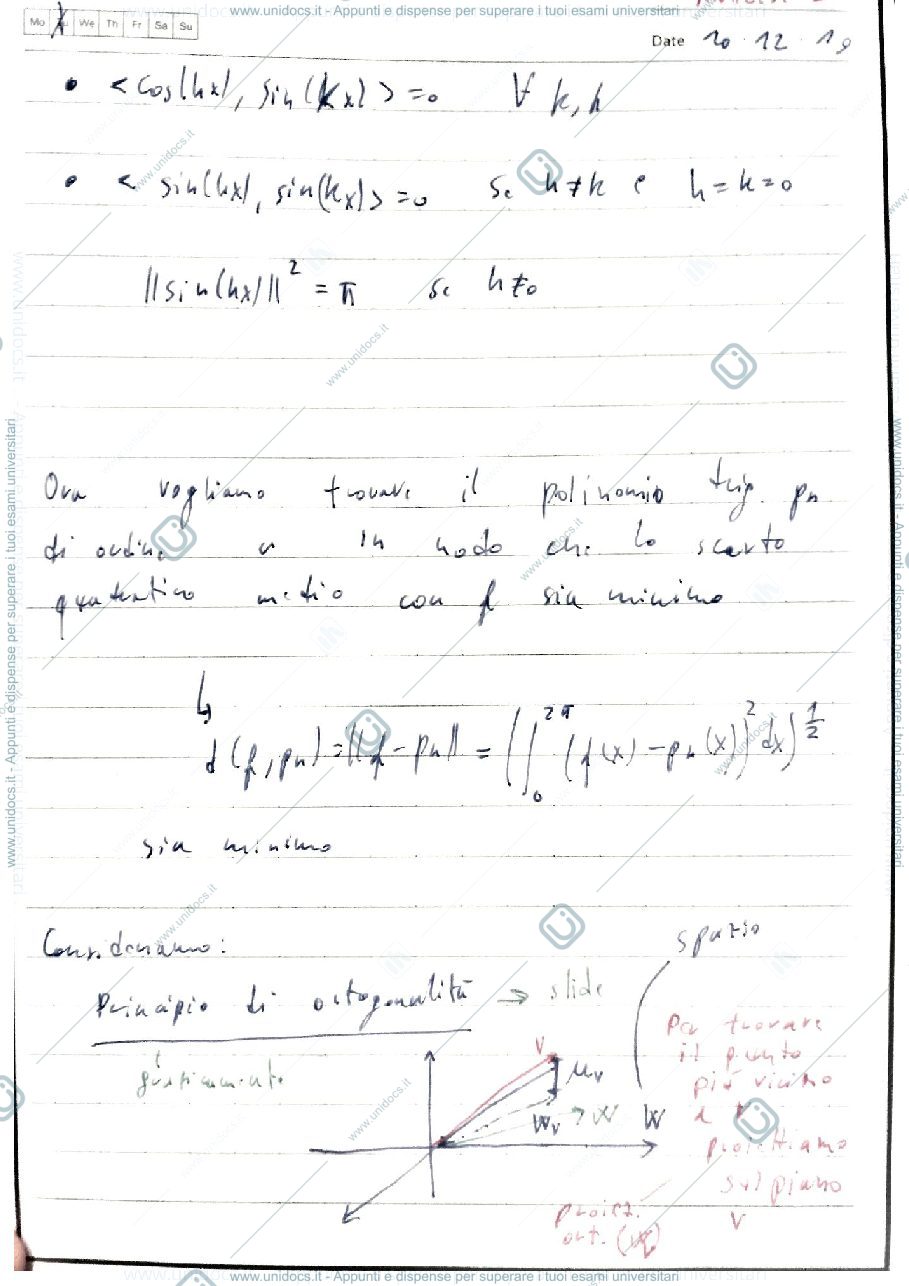 www.unidocs.it - Appunti e dispense per superare i tuoi esami universitari
Mo We Th Fr Sa Su
Date 10 · 12 · 19
• <cos(hx), sin(kx)> = 0 ∀ k, h
• < sin(hx), sin(kx)> = 0 se h≠k e h=k=0
||sin(hx)||² = π se h≠0
Ora vogliamo trovare il polinomio trig. pn
di ordine n in modo che lo scarto
quadratico medio con f sia minimo
↳
d(f, pn) = ||f - pn|| = (∫₀^2π (f(x) - pn(x))² dx)^½
sia minimo
Consideriamo:
Principio di ortogonalità → slide
spazio
Per trovare
il punto
più vicino
a V
proiettiamo
sul piano
V
v
uv
wv → W
W
proiez.
ort.
www.unidocs.it - Appunti e dispense per superare i tuoi esami universitari